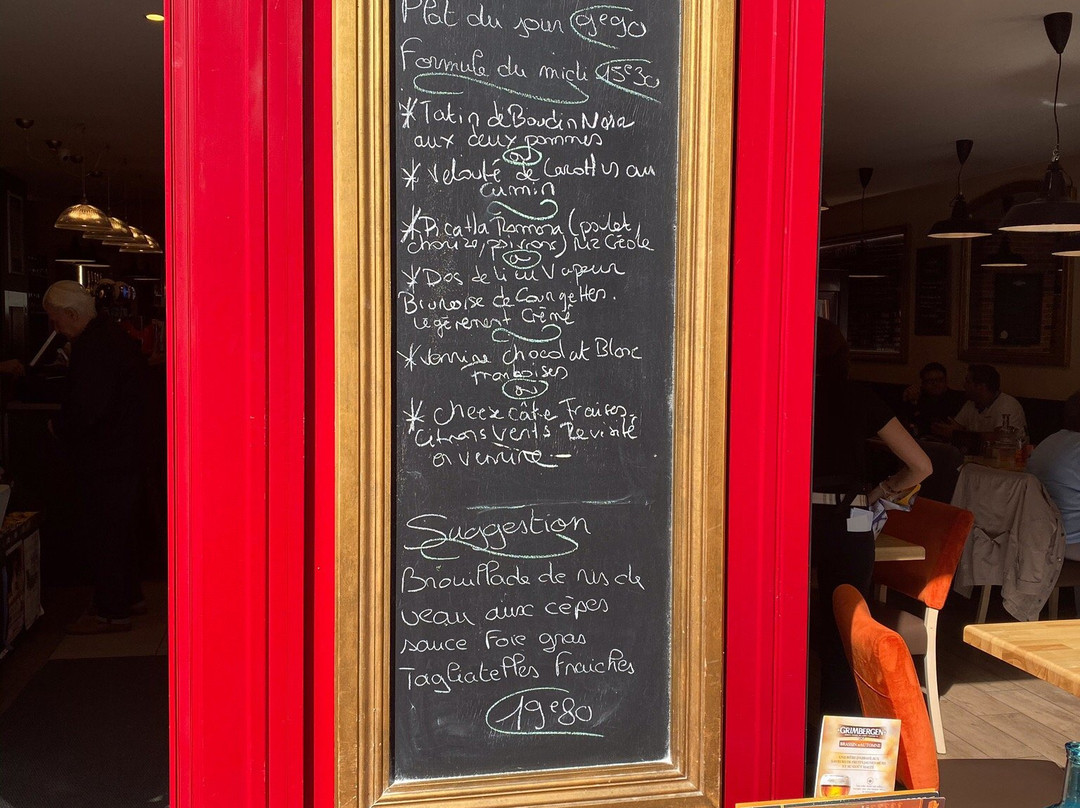 Plat du jour 9e90
Formule du midi 15e30
* Tatin de Boudin Noir
aux deux pommes
ou
* Velouté de Carottes au
cumin
* Picatta Ramona (poulet
chorizo, poivrons) riz Créole
ou
* Dos de lieu Vapeur
Brunoise de Courgettes.
légèrement Crémé
* Verrine chocolat Blanc
framboises
ou
* cheez câke Fraises,
Citrons Verts Revisité
en verrine
Suggestion
Brouillade de ris de
veau aux cèpes
sauce Foie gras
Tagliatelles Fraiches
19e80
GRIMBERGEN